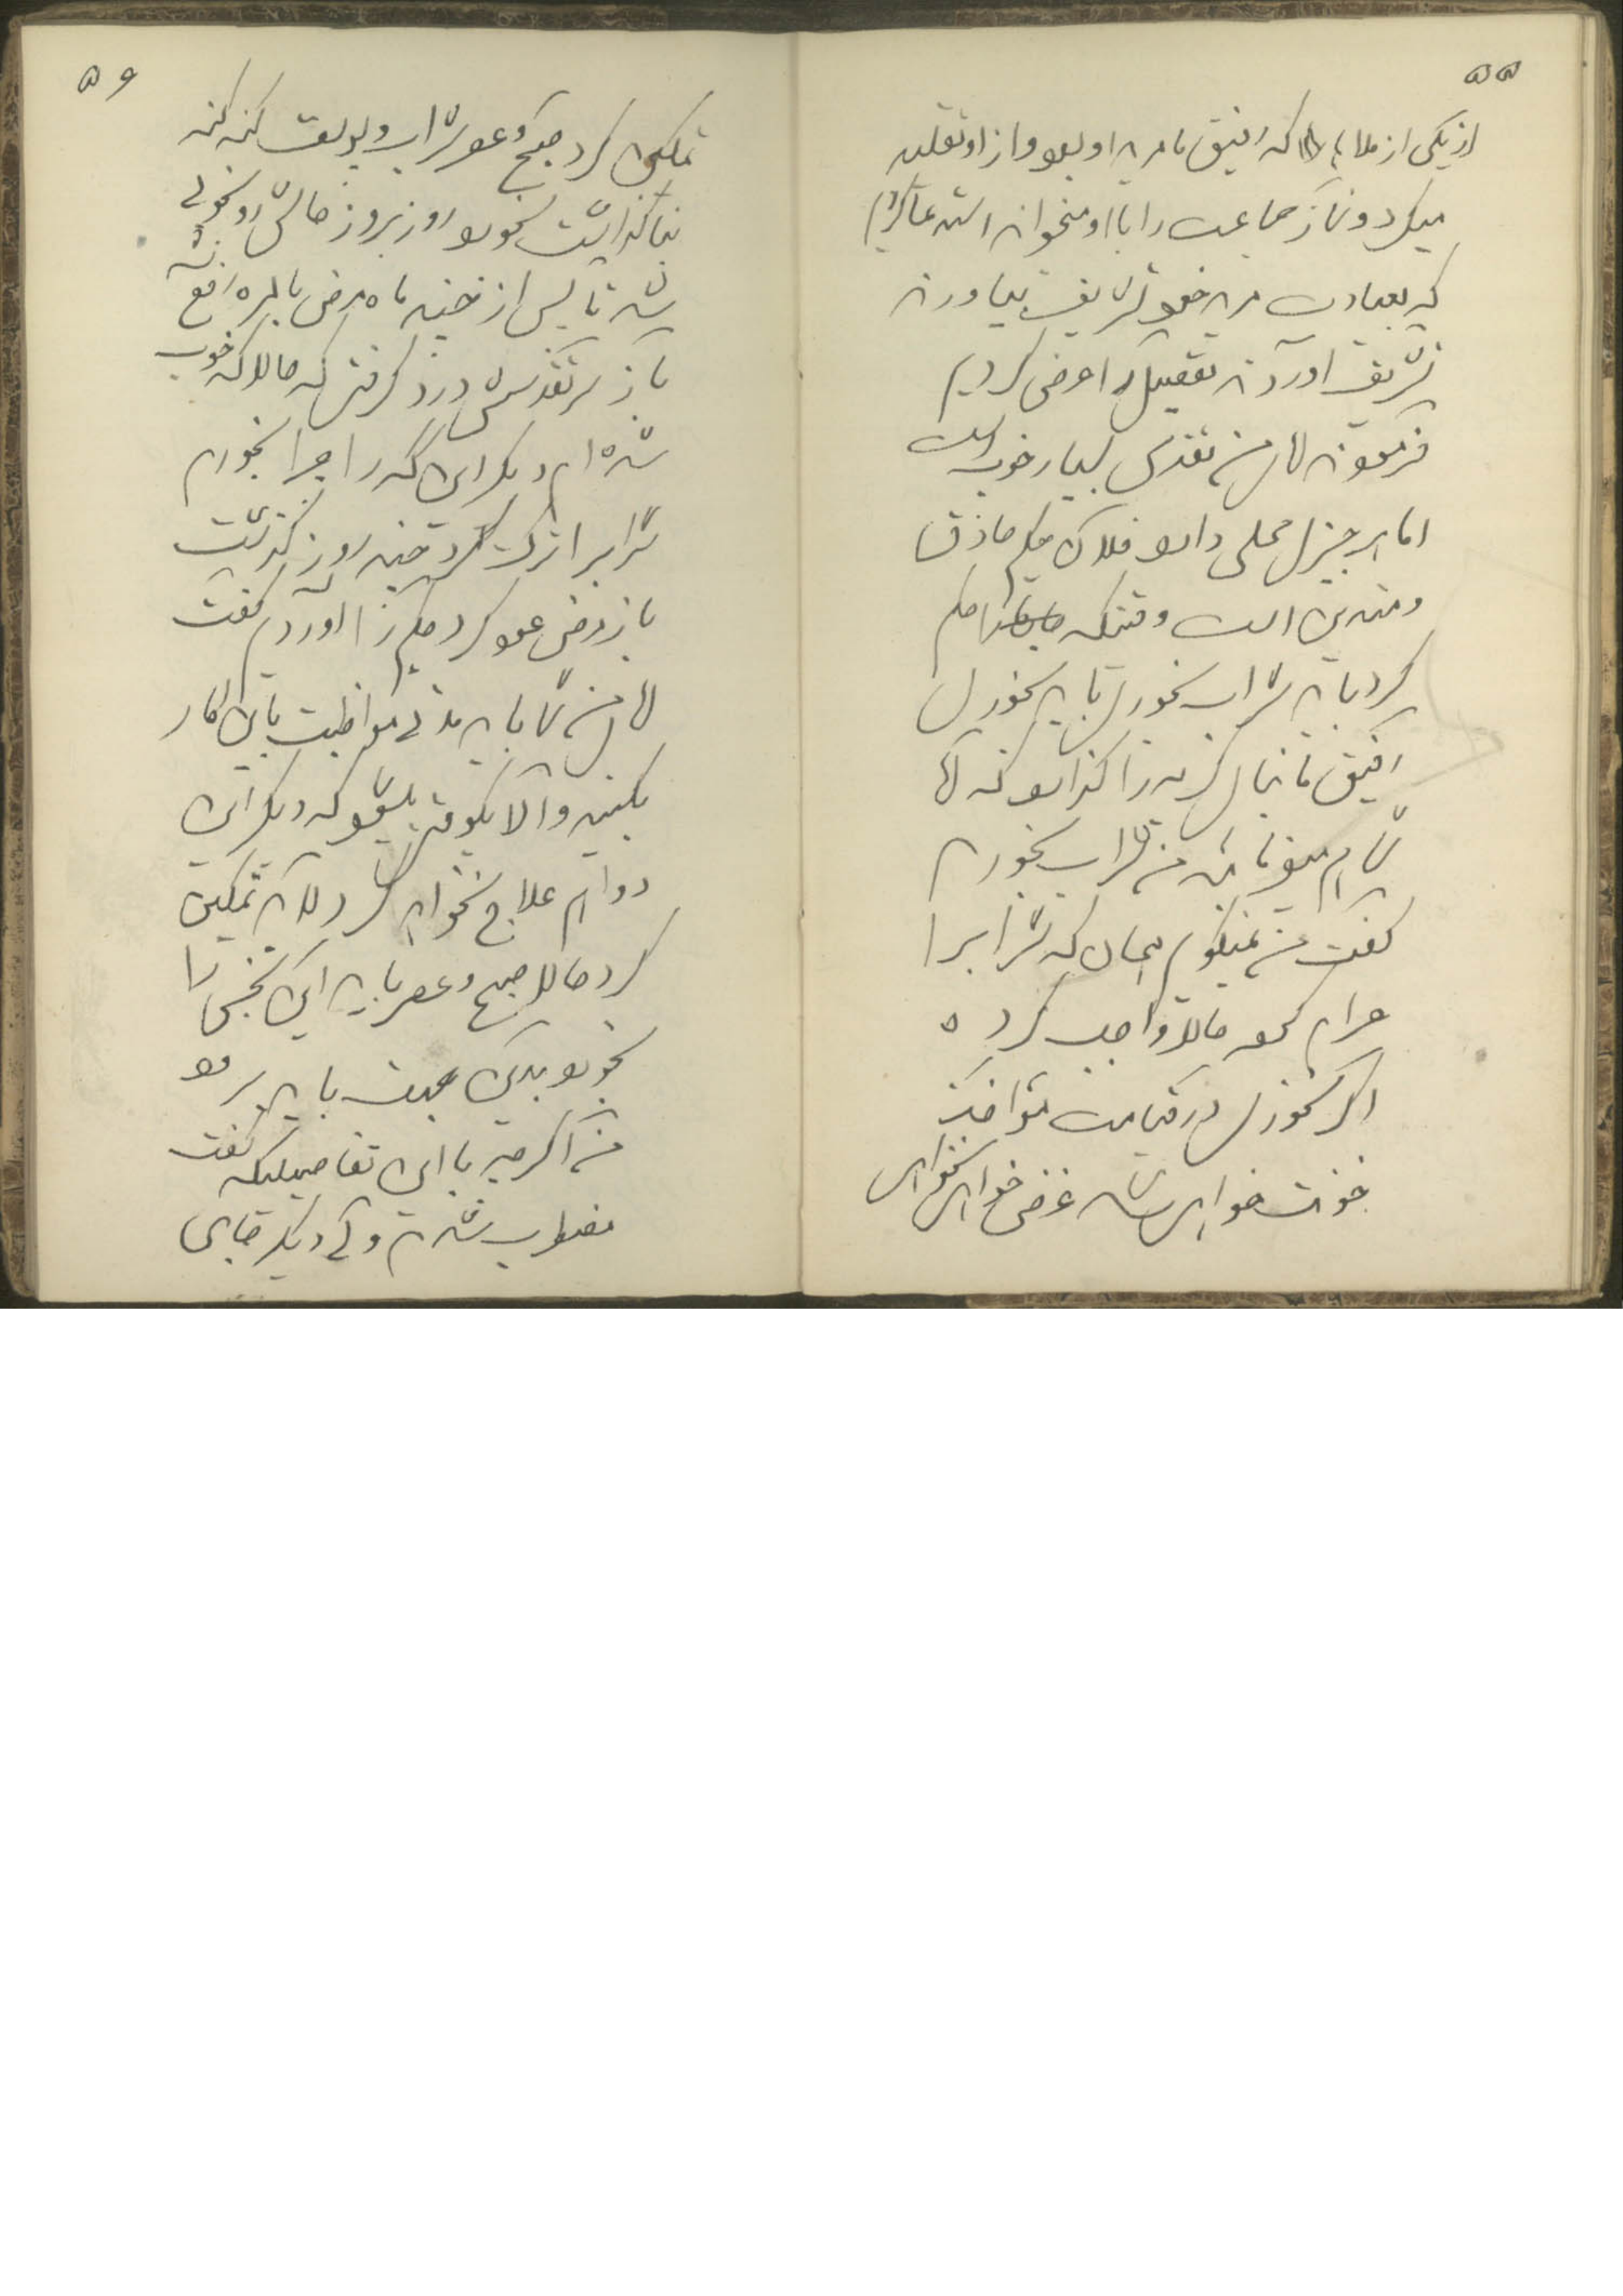 ۵۵
از یکی از ملاها که رفیق ما مرید او بود و از او تقلید
میکرد و نماز جماعت را با او میخواند استدعا کردیم
که بعیادت مرید خود تشریف بیاورند
تشریف آوردند تفصیل را عرض کردیم
فرمودند فلان تقدس بسیار خوب است
اما هر چیز محلی دارد فلان حکیم حاذق
و متدین است وقتیکه حکم
کرد باید شراب بخوری باید بخوری
رفیق ما بنای گریه را گذارد که آقا
شما هم میفرمائید من شراب بخورم
گفت من نمیگویم همان که شرابرا
حرام کرده حالا واجب کرده
اگر نخوری در قیامت مؤاخذ
خونت خواهی شد غرض خواهی نخواهی
۵۶
تمکین کرد صبح و عصر شراب و یولف گنه گنه
بنا گذاشت بخورد روز بروز حالش رو بخوبی
شد تا پس از چند ماه مرض بالمره رفع شد
باز سر تقدسش درد گرفت که حالا که خوب
شده‌ام دیگر این را چرا بخورم
شرابرا ترک کرد چند روز گذشت
باز مرض عود کرد حکیم را آوردیم گفت
شما باید مدتی مواظبت باین کار
بکنید والا یکوقت میشود که دیگر این
دوا هم علاج نخواهد کرد لابد تمکین
کرد حالا صبح و عصر باید این نجس را
بخورد بدین جهت باید برود
من اگرچه با این تفاصیلیکه گفت
مضطرب شدم ولی دیگر جای